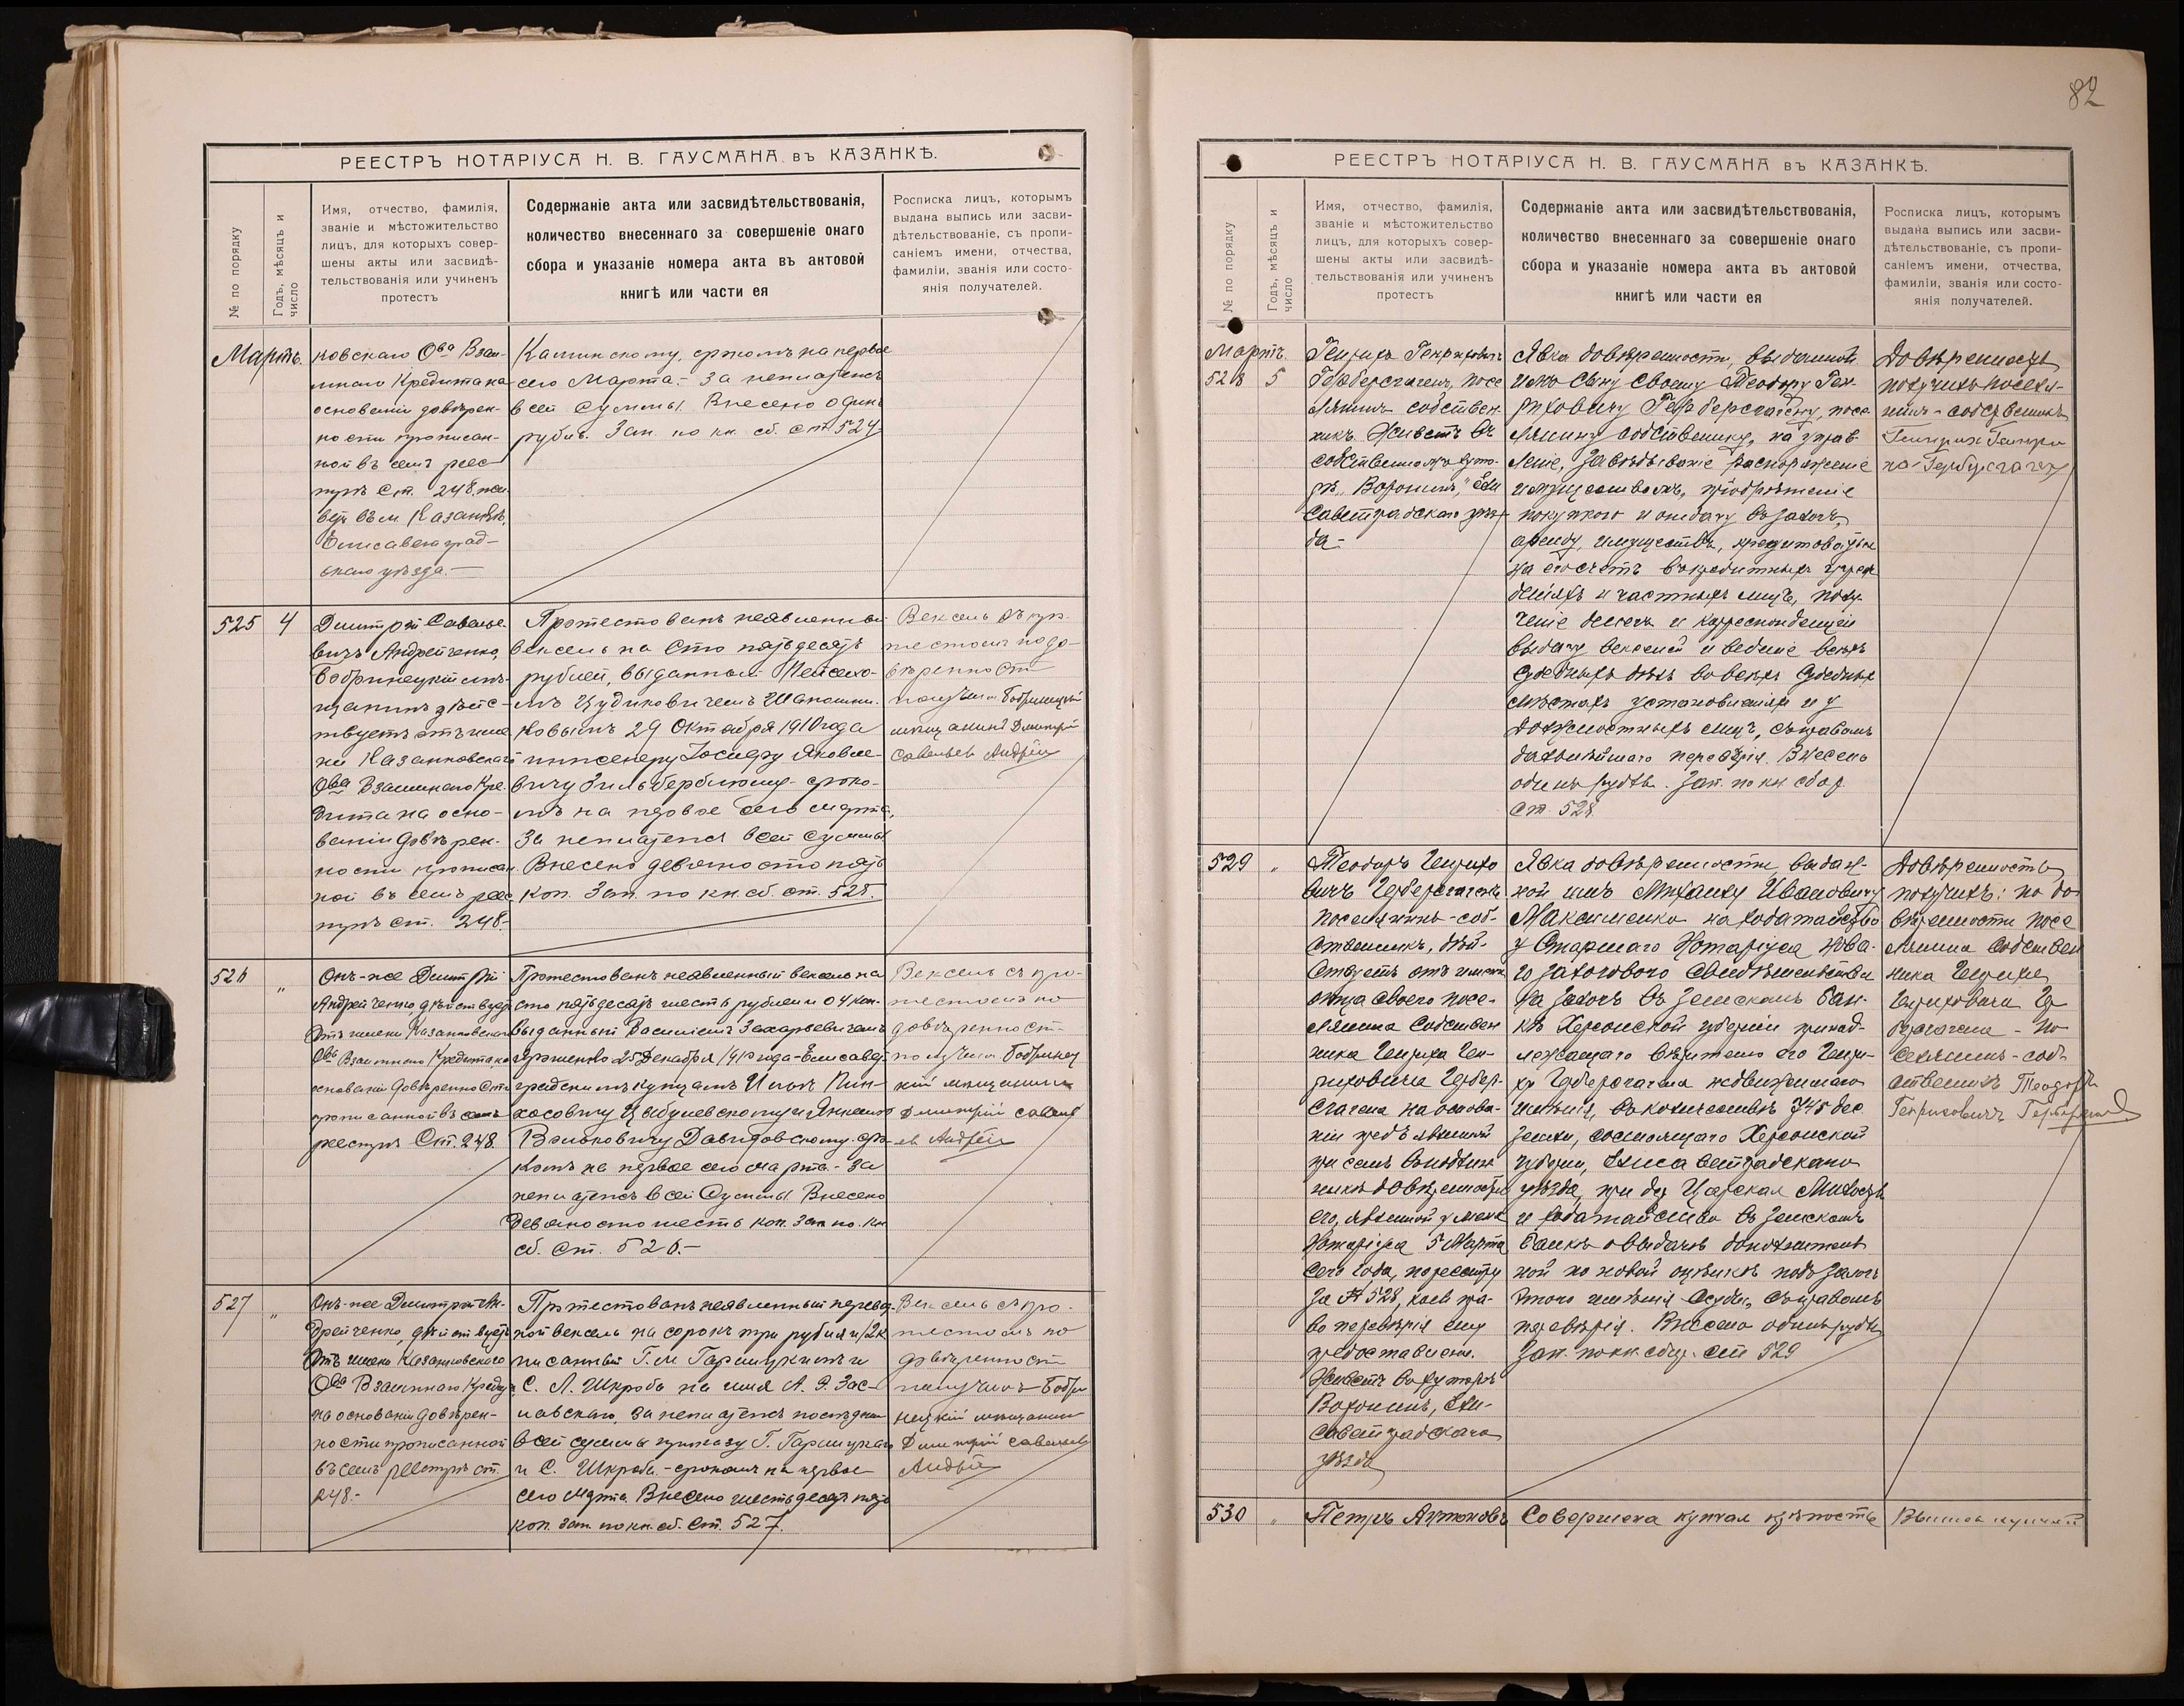 РЕЕСТРЪ НОТАРІУСА Н. В. ГАУСМАНА въ КАЗАНКѢ.
№ по порядку
Годъ, мѣсяцъ и число
Имя, отчество, фамилія,
званіе и мѣстожительство
лицъ, для которыхъ совер-
шены акты или засвидѣ-
тельствованія или учиненъ
протестъ
Содержаніе акта или засвидѣтельствованія,
количество внесеннаго за совершеніе онаго
сбора и указаніе номера акта въ актовой
книгѣ или части ея
Росписка лицъ, которымъ
выдана выпись или засви-
дѣтельствованіе, съ пропи-
саніемъ имени, отчества,
фамиліи, званія или состо-
янія получателей.
Мартъ.
ковскаго Ова Взаи-
мнаго Кредита на
основаніи довѣрен-
ности прописан-
ной въ семъ реес-
трѣ ст. 248. жи-
ветъ въ м. Казанкѣ,
Елисаветград-
скаго уѣзда.-
Каминскому, срокомъ на первое
сего Марта.- За неплатежъ
всей суммы. Внесено одинъ
рубль. Зап. по кн. сб. ст. 524.
525 4
Дмитрій Савелье-
вичъ Андрейченко,
Бобринецкій мѣ-
щанинъ дѣйс-
твуетъ отъ име-
ни Казанковскаго
Ова Взаимнаго Кре-
дита на осно-
ваніи довѣрен-
ности прописан-
ной въ семъ реес-
трѣ ст. 248.-
Протестованъ неявленный
вексель на сто пятьдесятъ
рублей, выданный
29 Октября 1910 года
инженеру Іосифу Яковле-
вичу Зильберблюму - сроко-
мъ на первое сего марта,
за неплатежъ всей суммы
Внесено девяносто пять
коп. Зап. по кн. сб. ст. 525.
Вексель съ про-
тестомъ по до-
вѣренности
получилъ Бобринецкій
мѣщанинъ Дмитрій
Савельев Андрей
526 „
Онъ-же Дмитрій
Андрейченко, дѣйствуетъ
отъ имени Казанковскаго
Ова Взаимнаго Кредита на
основаніи довѣренности
прописанной въ семъ
реестрѣ ст. 248.
Протестованъ неявленный вексель на
сто пятьдесятъ шесть рублей и 04 коп.
выданный Василіемъ Захарьевичемъ
25 Декабря 1910 года - Елисавет-
градскимъ купцамъ Ильѣ Пин-
хасовичу Цыбулевскому и Янкелю
Вольковичу Давидовскому - сро-
комъ на первое сего марта.- за
неплатежъ всей суммы Внесено
девяносто шесть коп. Зап. по кн.
сб. ст. 526.-
Вексель съ про-
тестомъ по
довѣренност-
получилъ Бобринец
кій мѣщанинъ
Дмитрій Савель
ев Андрей
527 „
Онъ-же Дмитрій Ан-
дрейченко, дѣйствуетъ
отъ имени Казанковскаго
Ова Взаимнаго Кредита
на основаніи довѣрен-
ности прописанной
въ семъ реестрѣ ст.
248.-
Протестованъ неявленный перевод-
ной вексель на сорокъ три рубля и 12 к
писанный Г. и Гаршукинъ и
С. Л. Шкробъ на имя А. Э. Зас-
лавскаго, за неплатежъ послѣднимъ
всей суммы приказу Г. Гаршукина
и С. Шкроба.- срокомъ на первое
сего марта. Внесено шестьдесятъ пять
коп. зап. по кн. сб. ст. 527.
Вексель съ про-
тестомъ по
довѣренност
получилъ Бобри
нецкій мѣщанин
Дмитрій Савельев
Андрей
82
РЕЕСТРЪ НОТАРІУСА Н. В. ГАУСМАНА въ КАЗАНКѢ.
№ по порядку
Годъ, мѣсяцъ и число
Имя, отчество, фамилія,
званіе и мѣстожительство
лицъ, для которыхъ совер-
шены акты или засвидѣ-
тельствованія или учиненъ
протестъ
Содержаніе акта или засвидѣтельствованія,
количество внесеннаго за совершеніе онаго
сбора и указаніе номера акта въ актовой
книгѣ или части ея
Росписка лицъ, которымъ
выдана выпись или засви-
дѣтельствованіе, съ пропи-
саніемъ имени, отчества,
фамиліи, званія или состо-
янія получателей.
Мартъ
528 5
Генрихъ Генриховичъ
Герберсгагенъ, посе
лянинъ собствен-
никъ. Живетъ въ
собственномъ хуто-
рѣ „Воронинъ," Ели
саветградскаго уѣз-
да.-
Явка довѣренности, выданной
имъ сыну своему Теодору Ген-
риховичу Герберсгагену, посе
лянину собственнику, на управ
леніе, завѣдываніе распоряженіе
имуществомъ, пріобрѣтеніе
покупкою и отдачу въ залогъ,
аренду, имуществъ, кредитоваться
на его счетъ въ кредитныхъ учреж
деніяхъ и частныхъ лицъ, полу-
ченіе денегъ и корреспонденціи
выдачу векселей и веденіе всѣхъ
судебныхъ дѣлъ во всѣхъ судебныхъ
мѣстахъ установленіяхъ и у
должностныхъ лицъ, съ правомъ
дальнѣйшаго перевѣрія. Внесено
одинъ рубль. Зап. по кн. сбор.
ст. 528.
Довѣренность
получилъ поселя-
нинъ-собственникъ
Генрих Генри
хо Герберсгаген
529 „
Теодоръ Генрихо
вичъ Герберсгагенъ
поселянинъ-соб-
ственникъ, дѣй-
ствуетъ отъ имени
отца своего посе-
лянина собствен
ника Генриха Ген-
риховича Гербер-
сгагена на основа-
ніи предъявленной
при семъ въ подлин
никѣ довѣренности
его, явленной у меня
Нотаріуса 5 Марта
сего года, по реестру
за № 528, коей пра-
во перевѣрія ему
предоставлено.
Живетъ въ хуторѣ
Воронинъ, Ели-
саветградскаго
уѣзда
Явка довѣренности, выдан-
ной имъ Михаилу Ивановичу
Максименко на ходатайство
у Старшаго Нотаріуса нова-
го залогового свидѣтельства
на залогъ въ Земскомъ Бан-
кѣ Херсонской губерніи принад-
лежащаго вѣрителю его Генри-
ху Герберсгагена недвижимаго
имѣнія, въ количествѣ 745 дес
земли, состоящаго Херсонской
губерніи, Елисаветградскаго
уѣзда, при дер Царская Милость
и ходатайство въ Земскомъ
Банкѣ о выдачѣ дополнитель
ной по новой оцѣнкѣ подъ залогъ
этого имѣнія ссуды, съ правомъ
перевѣрія. Внесено одинъ рубль
Зап. по кн. сбор. ст 529
Довѣренность
получилъ: по до-
вѣренности посе
лянина собствен
ника Генриха
Генриховича Гер
берсгагена - по
селянинъ-соб
ственникъ Теодоръ
Генриховичъ Герберсгаген
530 „
Петръ Антоновъ
Совершена купчая крѣпость